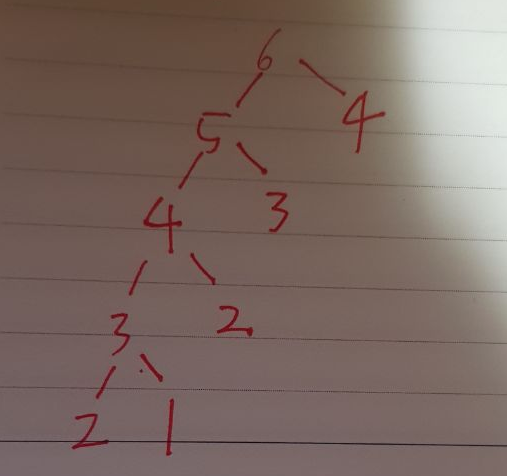 6
5 4
4 3
3 2
2 1